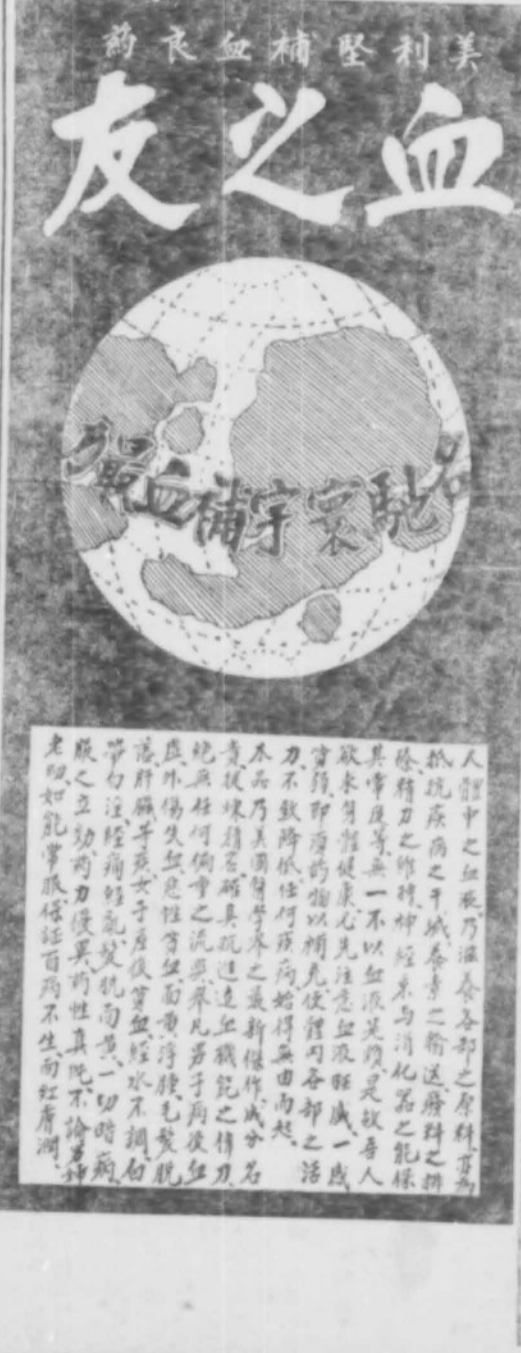 美利堅補血良药
血之友
名馳寰宇補血最
人體中之血液乃滋養各部之原料亦為
抵抗疾病之干城養素之輸送廢料之排
除精力之維持神經系与消化器之能保
其常度等無一不以血液是頼是故吾人
欲求身體健康必先注意血液旺盛一感
貧弱即須药物以補充使體内各部之活
力不致降低任何疾病始得無由而起
本品乃美國醫學界之最新傑作成分名
貴提煉精名確具抗進造血機能之偉力
絶無任何偏重之流弊舉凡男子病後血
虛外傷失血惡性貧血面黄浮腫毛髮脱
落肝臟萎靡女子產後貧血經水不調白
帶白淫經痛經亂髮脱面黄一切暗病
服之立効药力優異药性真純不論男婦
老幼如能常服保証百病不生面紅膚潤